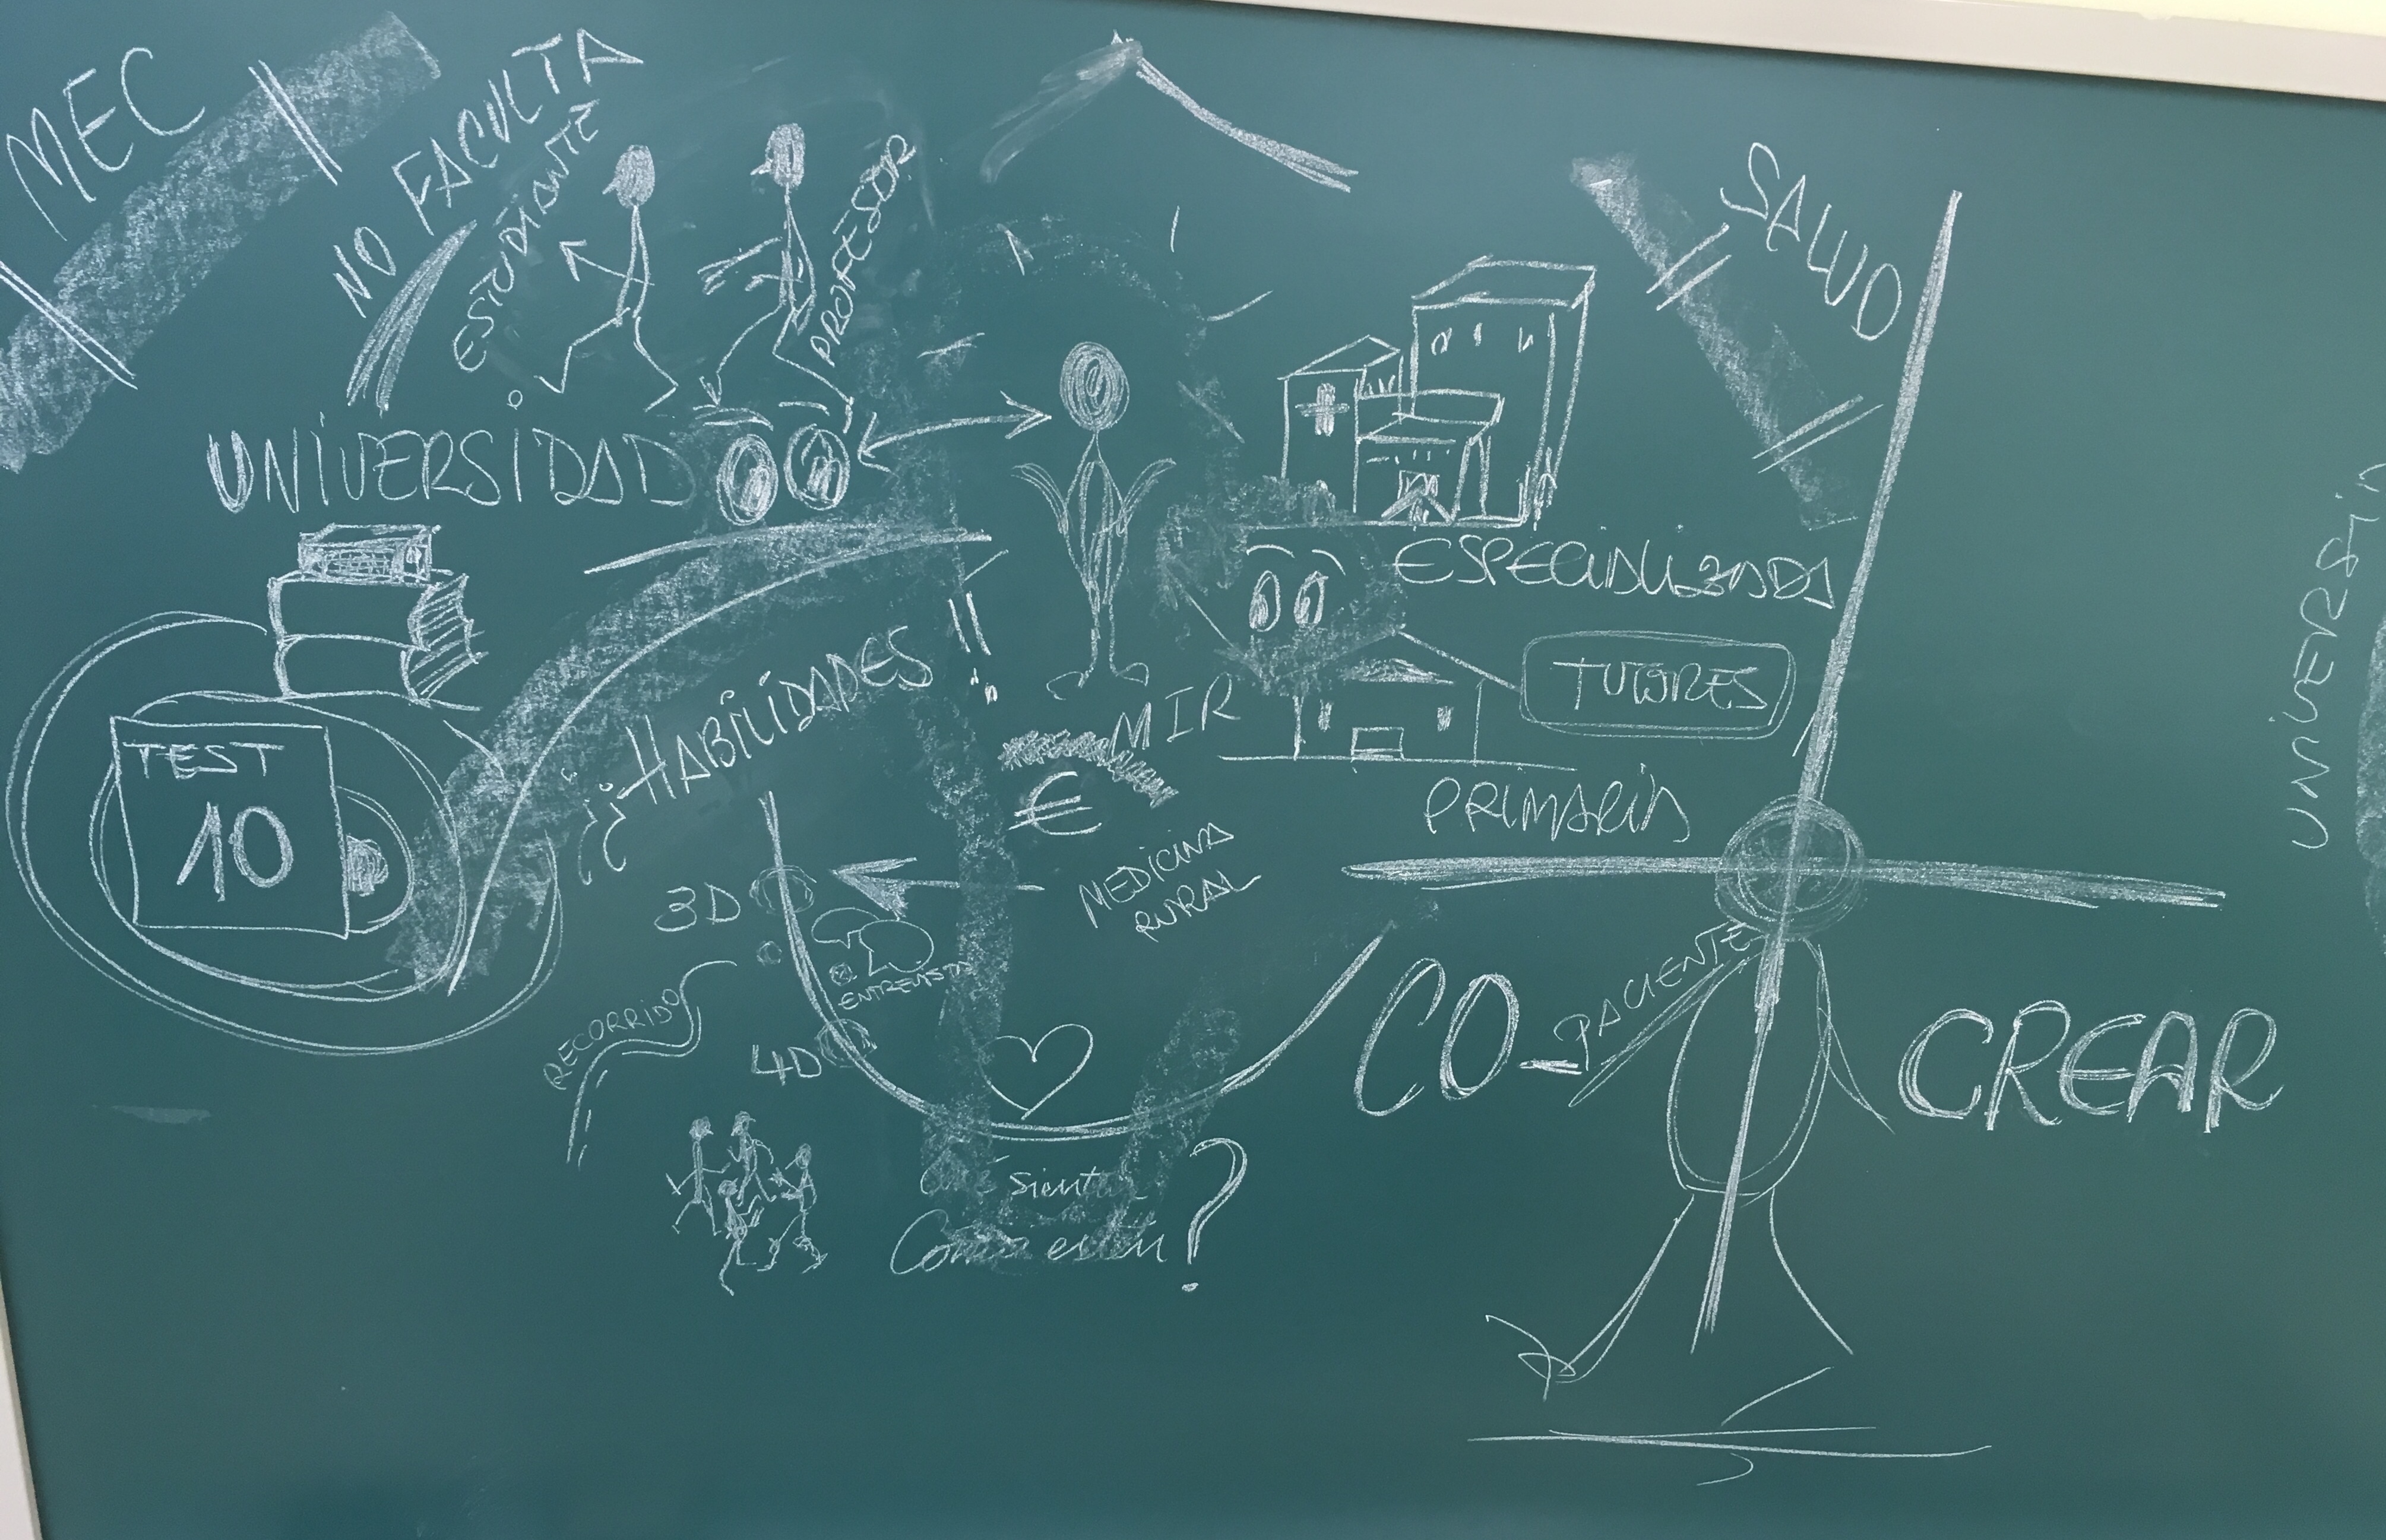 MEC
NO FACULTA
ESTUDIANTE
PROFESOR
SALUD
UNIVERSIDAD
ESPECIALIZADA
TUTORES
¡¡HABILIDADES!!
MIR
TEST
10
€
PRIMARIA
MEDICINA
RURAL
3D
ENTREVISTA
RECORRIDO
4D
PACIENTE
CO-CREAR
?